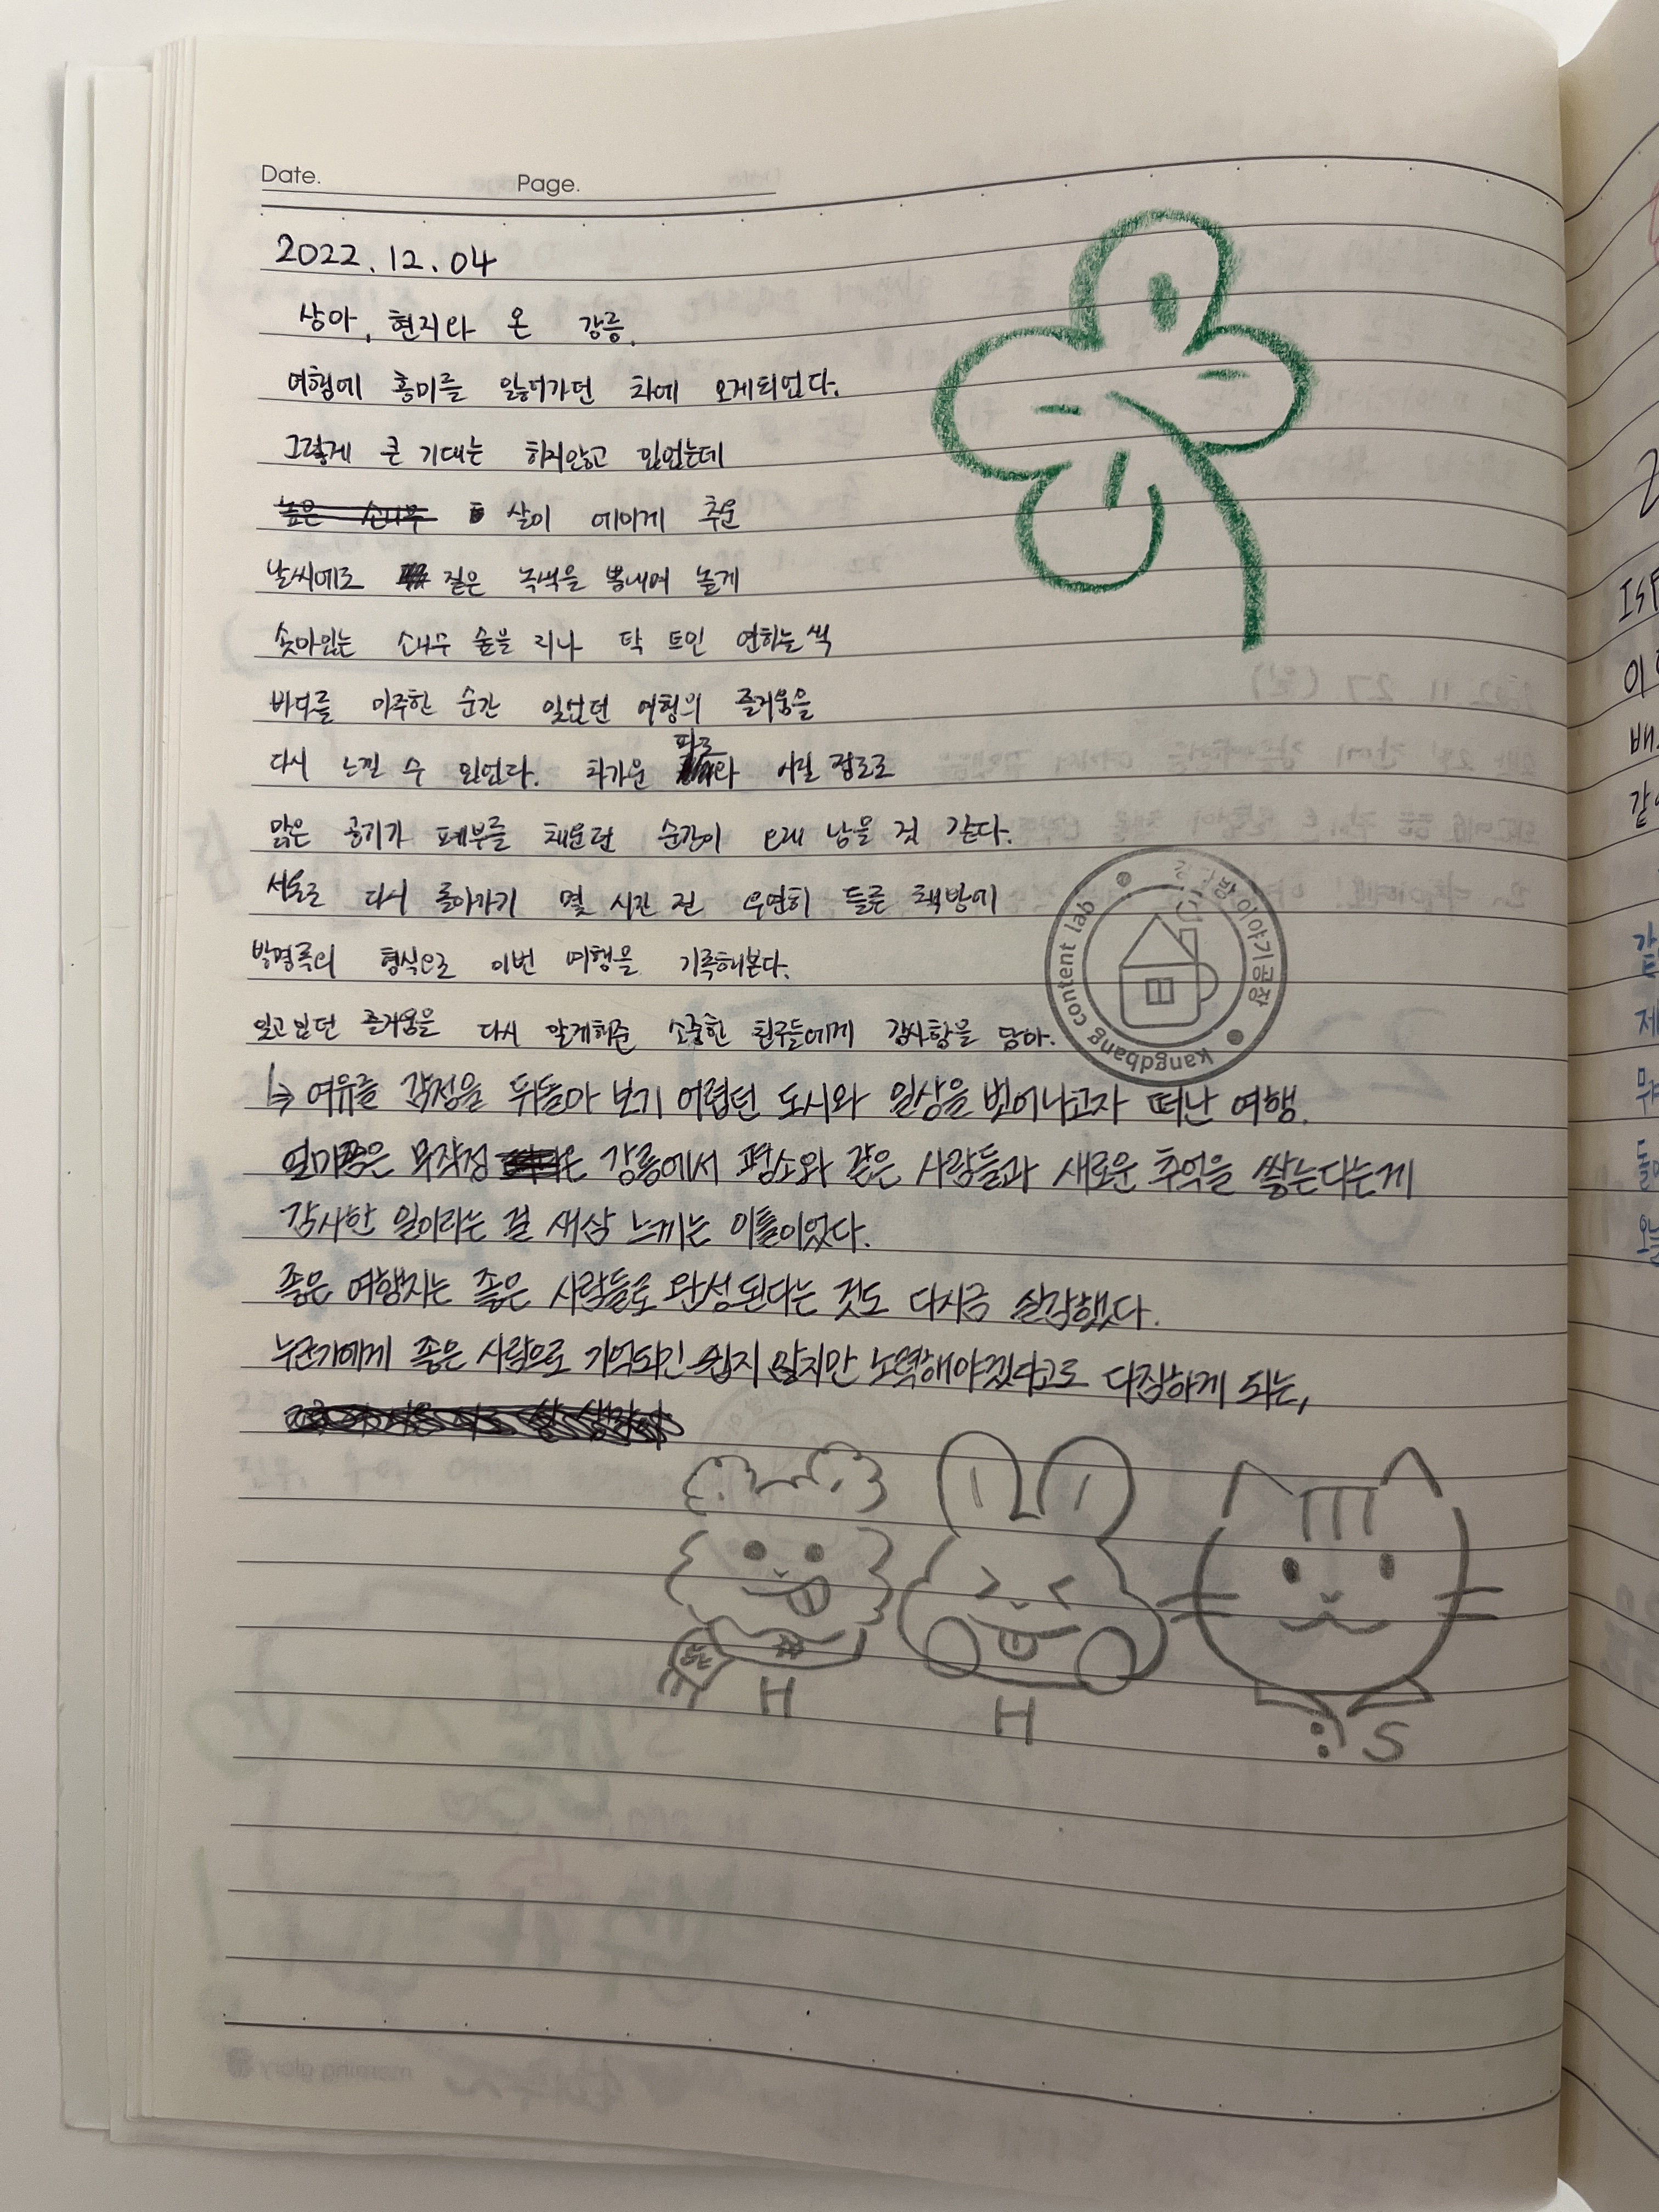 Date. Page.
2022.12.04
상아, 현지와 온 강릉.
여행에 흥미를 잃어가던 차에 오게되었다.
그렇게 큰 기대는 하지않고 있었는데
높은 소나무 살이 에이게 추운
날씨에도 짙은 녹색을 뽐내며 높게
솟아있는 소나무 숲을 지나 탁 트인 연하늘색
바다를 마주한 순간 잊었던 여행의 즐거움을
다시 느낄 수 있었다. 차가운 파도와 시릴 정도로
맑은 공기가 폐부를 채운던 순간이 오래 남을 것 같다.
서울로 다시 돌아가기 몇 시간 전 우연히 들른 책방에
방명록의 형식으로 이번 여행을 기록해본다.
잊고 있던 즐거움을 다시 알게해준 소중한 친구들에게 감사함을 담아.
↳ 여유를 감정을 뒤돌아 보기 어렵던 도시와 일상을 벗어나고자 떠난 여행.
연고 무작정 강릉에서 평소와 같은 사람들과 새로운 추억을 쌓는다는게
감사한 일이라는 걸 새삼 느끼는 이틀이었다.
좋은 여행지는 좋은 사람들로 완성된다는 것도 다시금 실감했다.
누군가에게 좋은 사람으로 기억되긴 쉽지 않지만 노력해야겠다고도 다짐하게 되는,
H H :) S
강방이야기공장
kangdbang content lab
morning glory